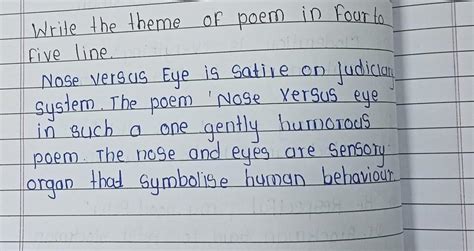 Write the theme of poem in four to
five line.
Nose versus Eye is satire on judiciary
system. The poem 'Nose versus eye
in such a one gently humorous
poem. The nose and eyes are sensory
organ that symbolise human behaviour.